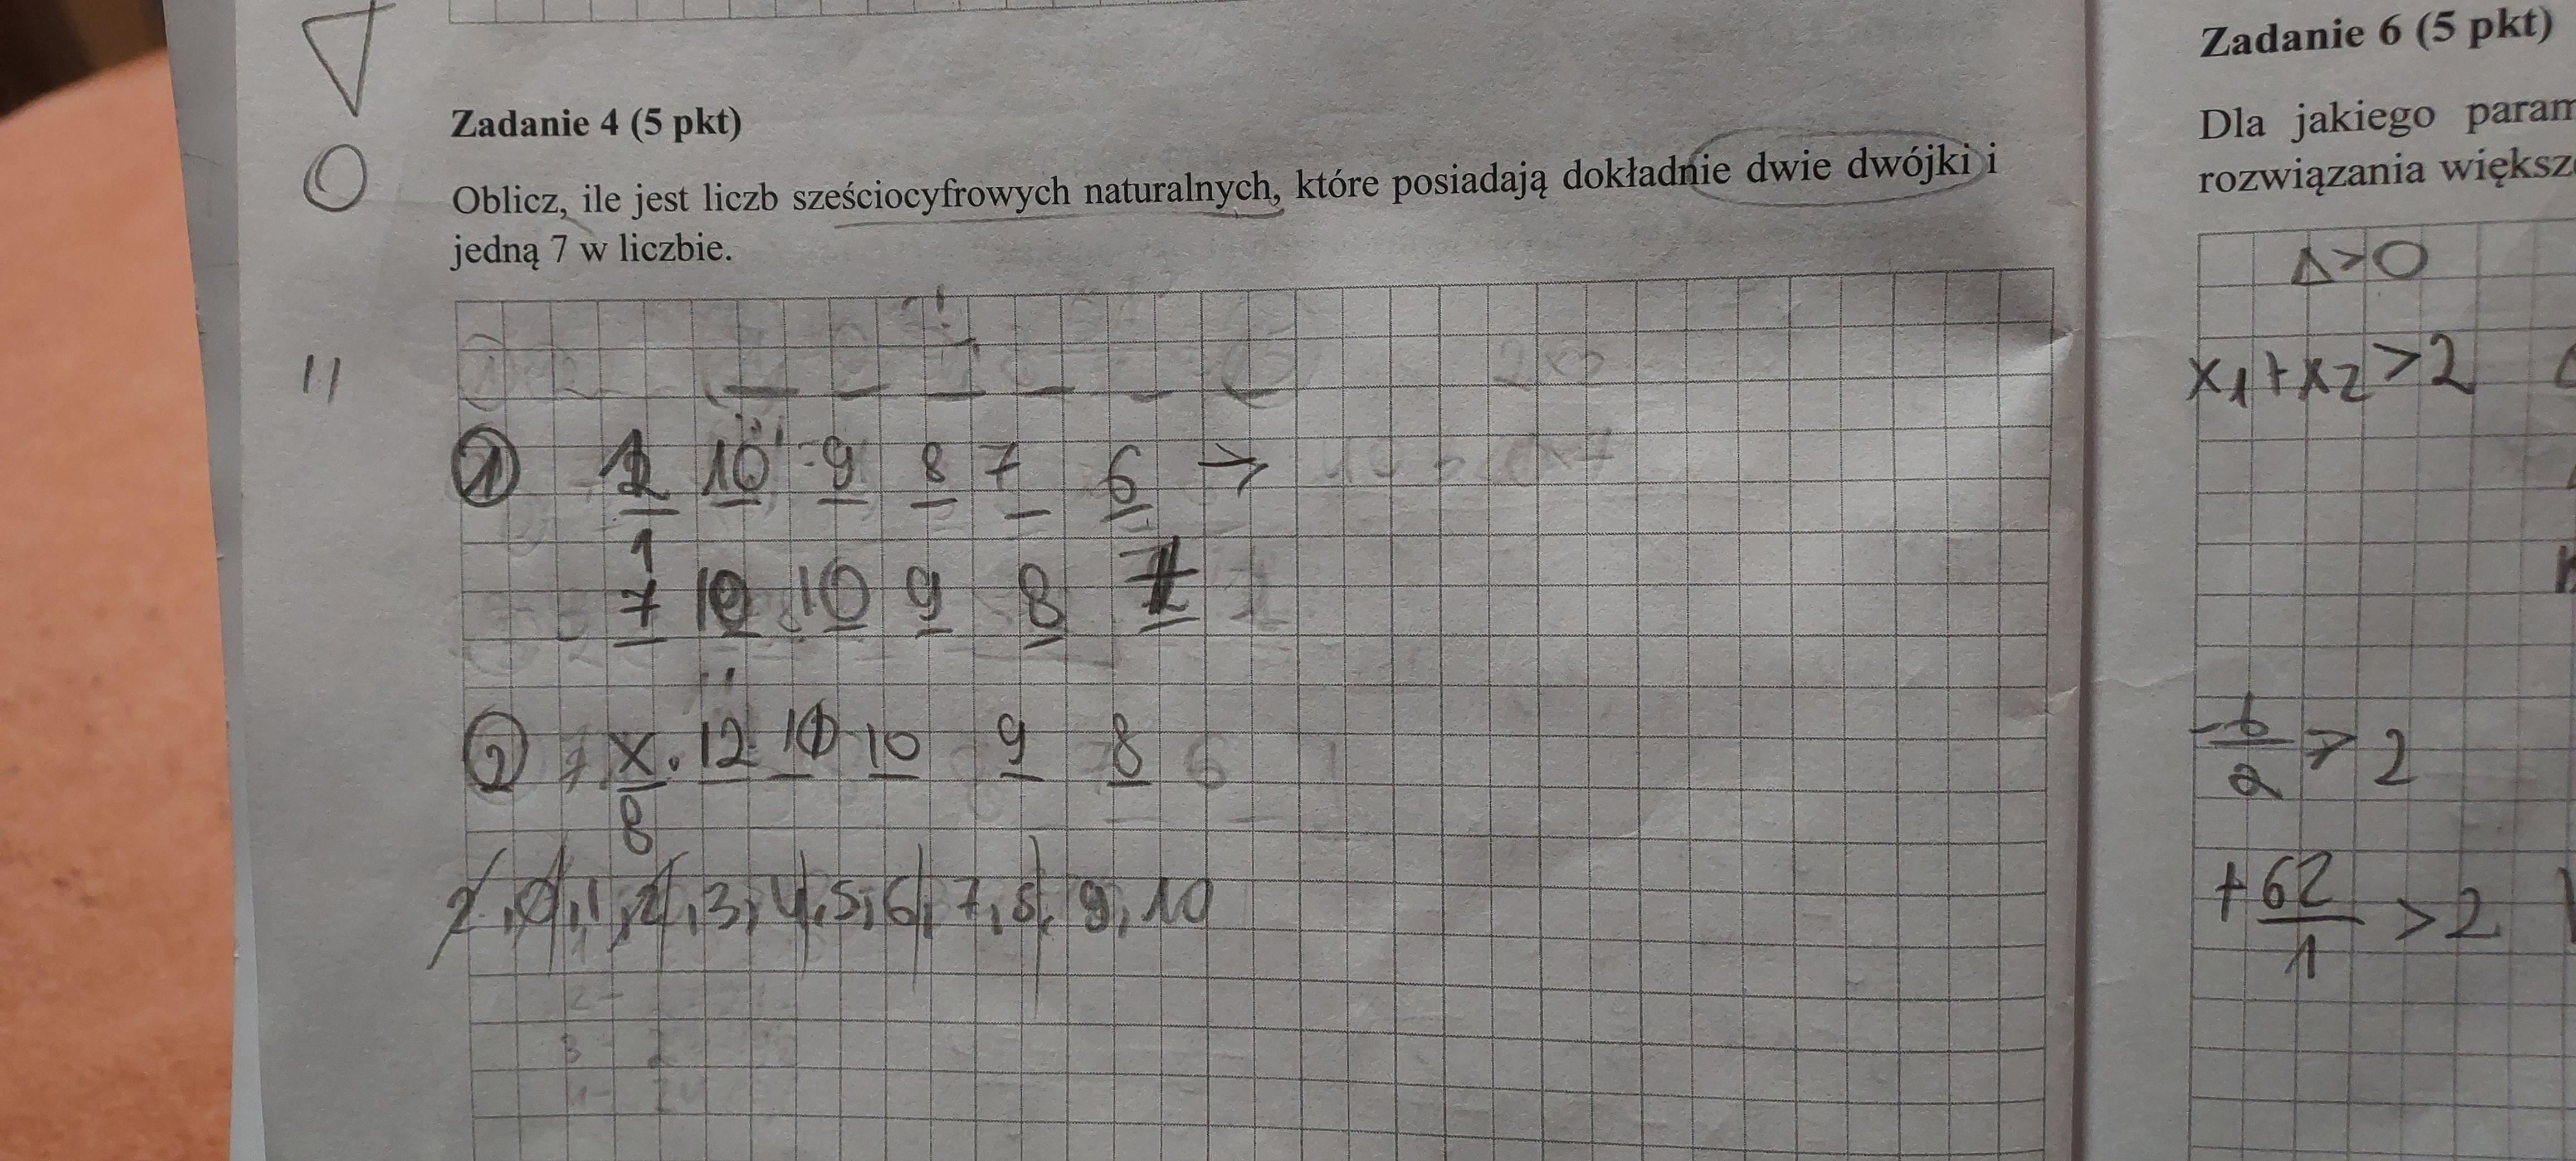 Zadanie 4 (5 pkt)
Oblicz, ile jest liczb sześciocyfrowych naturalnych, które posiadają dokładnie dwie dwójki i
jedną 7 w liczbie.
11
① 10 9 8 7 6 →
1
7 10 10 9 8
② x. 12 10 10 9 8
8
2, 0, 1, 2, 3, 4, 5, 6, 7, 8, 9, 10
Zadanie 6 (5 pkt)
Dla jakiego param
rozwiązania większ
Δ>0
x1+x2>2
-b/2 > 2
+62/1 > 2